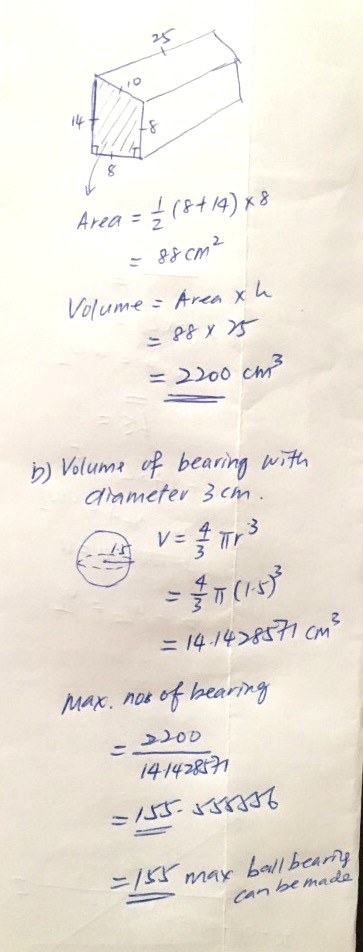 25
10
14
8
8
Area = 1/2 (8+14) × 8
= 88 cm²
Volume = Area × h
= 88 × 25
= 2200 cm³
b) Volume of bearing with
diameter 3 cm.
1.5
V = 4/3 πr³
= 4/3 π (1.5)³
= 14.1428571 cm³
Max. nos of bearing
= 2200
14.1428571
= 155.555556
= 155 max ball bearing
can be made